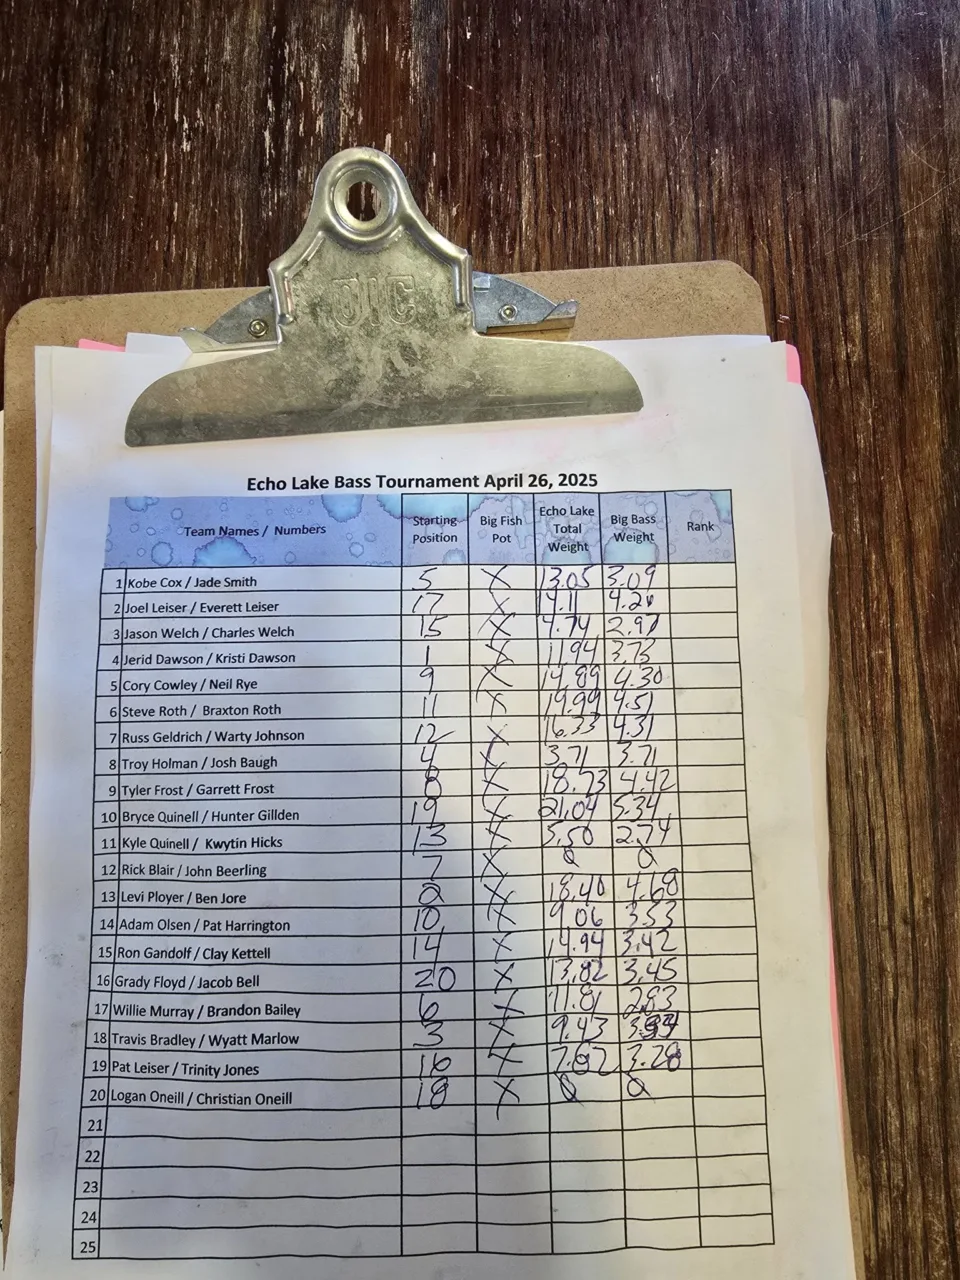 DIC
Echo Lake Bass Tournament April 26, 2025
Team Names / Numbers Starting Position Big Fish Pot Echo Lake Total Weight Big Bass Weight Rank
1 Kobe Cox / Jade Smith 5 X 13.05 3.09
2 Joel Leiser / Everett Leiser 17 X 14.11
3 Jason Welch / Charles Welch 15 X 4.74 2.97
4 Jerid Dawson / Kristi Dawson 1 X 11.94 3.73
5 Cory Cowley / Neil Rye 9 X 14.89 4.30
6 Steve Roth / Braxton Roth 11 X 4.51
7 Russ Geldrich / Warty Johnson 12 X 16.33 4.31
8 Troy Holman / Josh Baugh 4 X 3.71 3.71
9 Tyler Frost / Garrett Frost 8 X 18.73 4.42
10 Bryce Quinell / Hunter Gillden 19 X 21.04 5.34
11 Kyle Quinell / Kwytin Hicks 13 X 5.50 2.74
12 Rick Blair / John Beerling 7 X 0 0
13 Levi Ployer / Ben Jore 2 X 18.40 4.68
14 Adam Olsen / Pat Harrington 10 X 9.06 3.53
15 Ron Gandolf / Clay Kettell 14 X 14.94 3.42
16 Grady Floyd / Jacob Bell 20 X 13.82 3.45
17 Willie Murray / Brandon Bailey 6 X 11.81 2.83
18 Travis Bradley / Wyatt Marlow 3 X 9.43
19 Pat Leiser / Trinity Jones 16 X 7.82 3.28
20 Logan Oneill / Christian Oneill 18 X 0 0
21
22
23
24
25